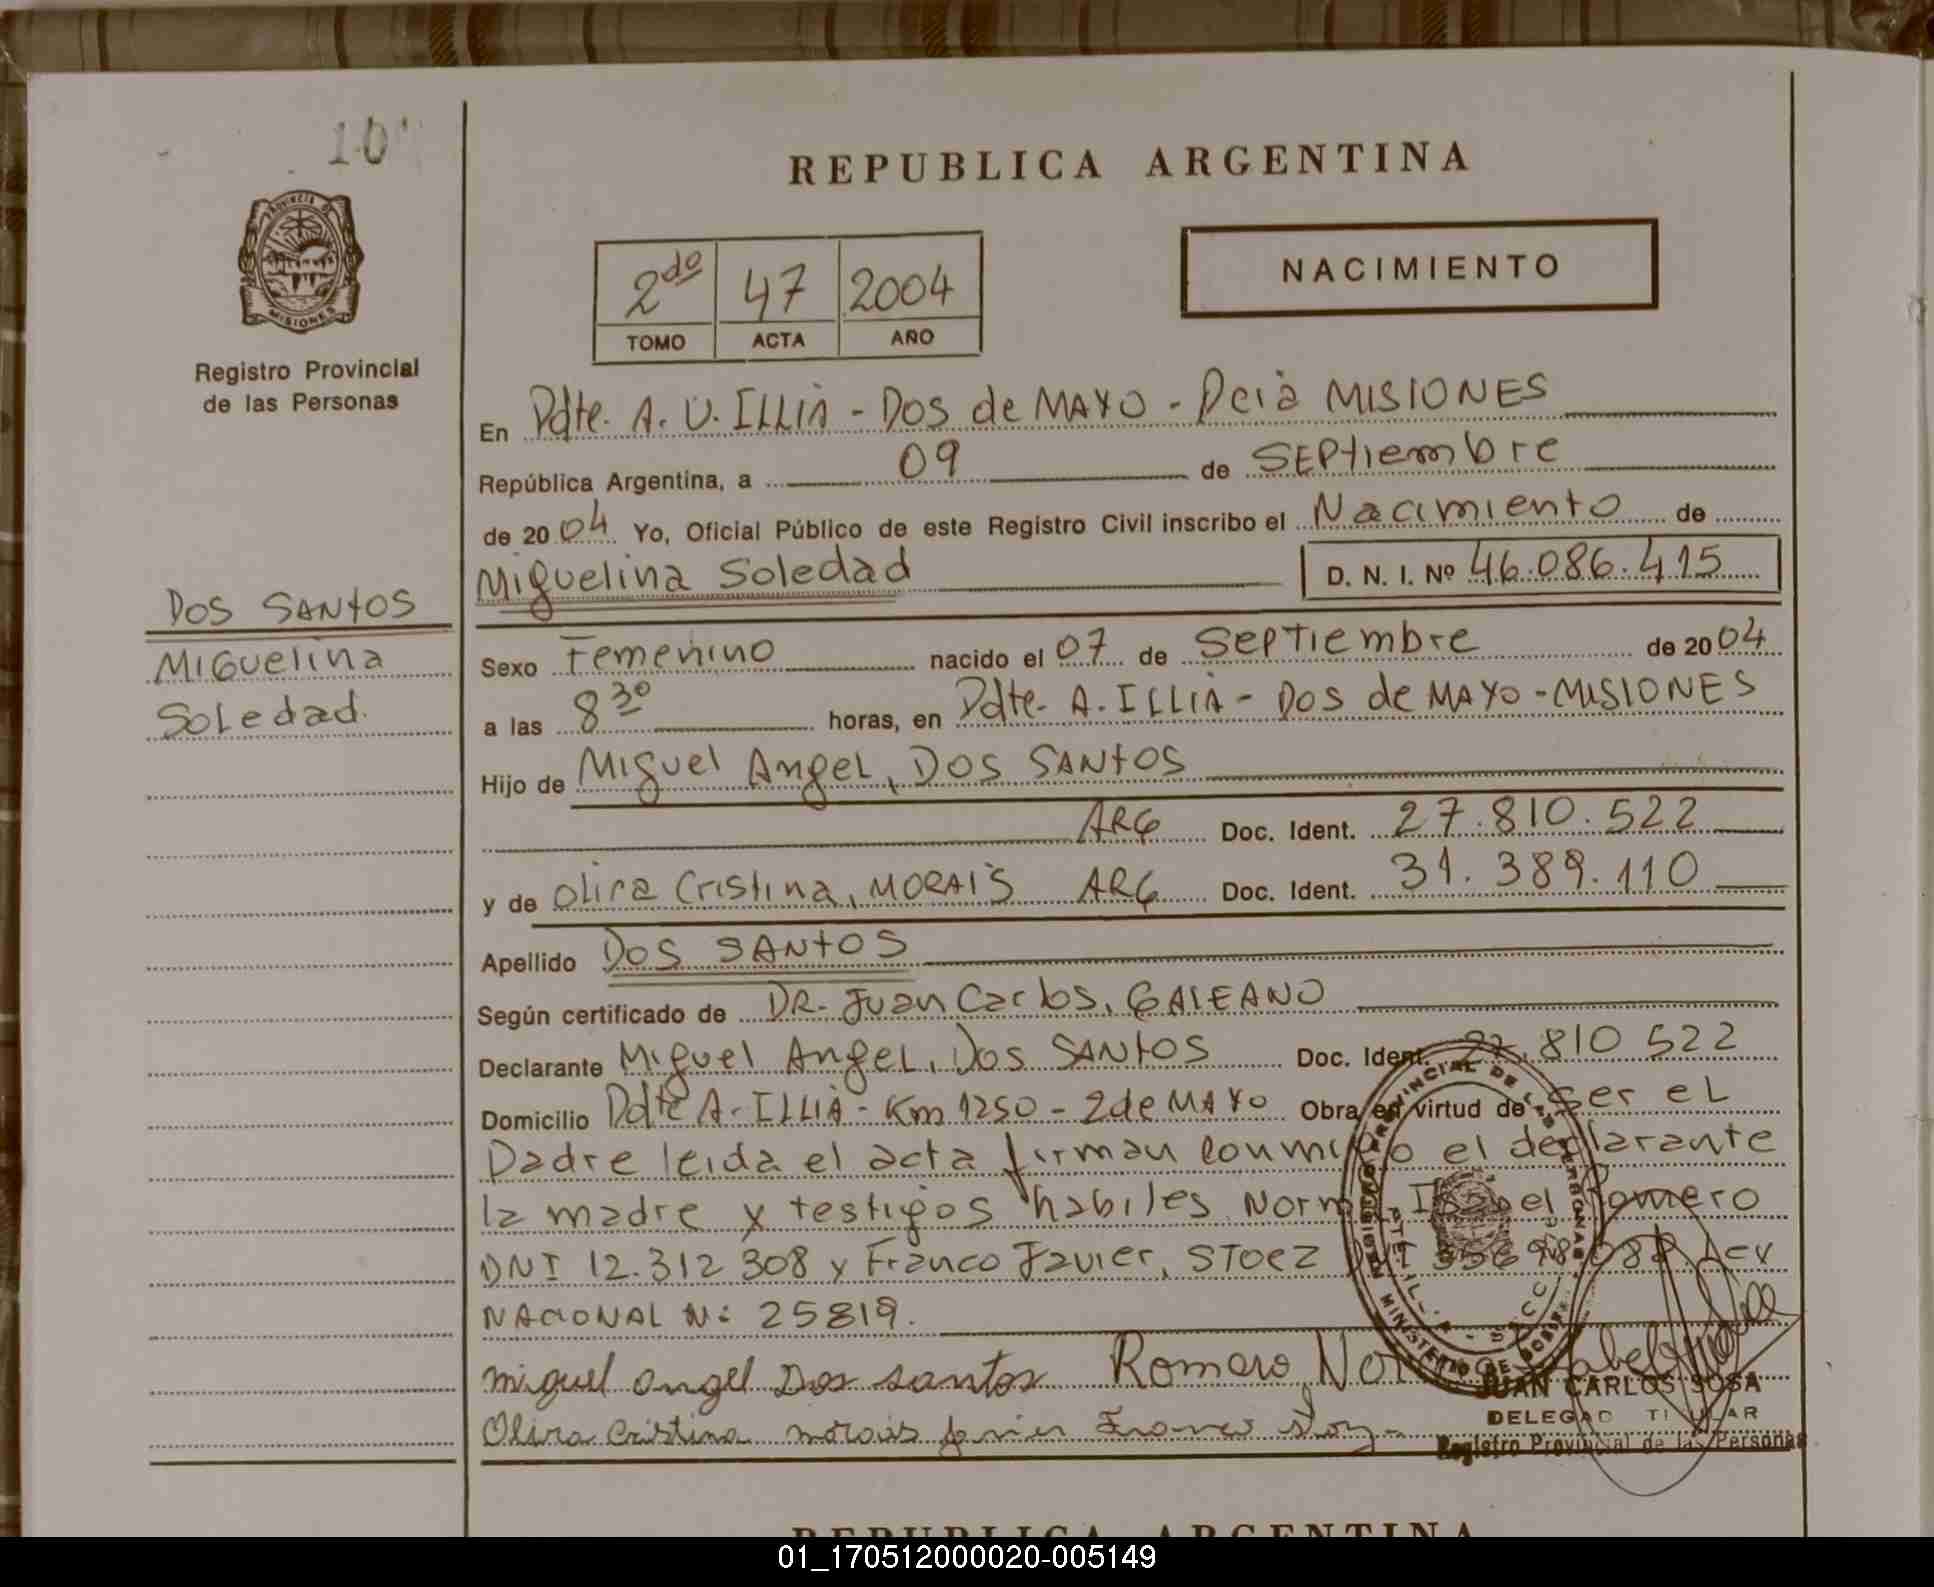 10
REPUBLICA ARGENTINA
PROVINCIA D
MISIONES
Registro Provincial
de las Personas
2do 47 2004
TOMO ACTA AÑO
NACIMIENTO
En Pdte. A. U. ILLIA - DOS de MAYO - Pcia MISIONES
República Argentina, a 09 de SEPtiembre
de 2004 Yo, Oficial Público de este Registro Civil inscribo el Nacimiento de
Miguelina Soledad D. N. I. Nº 46.086.415
DOS SANtOS
MIGuelina
Soledad.
Sexo Femenino nacido el 07 de SepTiembre de 2004
a las 8 30 horas, en Pdte. A. ILLIA - DOS de MAYO - MISIONES
Hijo de Miguel AngeL, DOS SANtOS
ARG Doc. Ident. 27.810.522
y de olira Cristina, MORAIS ARG Doc. Ident. 31.389.110
Apellido DOS SANtOS
Según certificado de DR. Juan Carlos, GALEANO
Declarante Miguel AngeL, Dos SANtOS Doc. Ident. 27.810 522
Domicilio Pdte A. ILLIA - Km 1250 - 2 de MAYO Obra en virtud de ser eL
Padre leida el acta firman conmigo el declarante
la madre y testigos habiles Norma Isabel Romero
DNI 12.312 308 y Franco Javier, STOEZ Ley
NACIONAL N: 25819.
miguel angel Dos santos Romero, Nor
Olira Cristina morais Javier Franco
JUAN CARLOS SOSA
DELEGADO TITULAR
Registro Provincial de las Personas
REPUBLICA ARGENTINA
01_170512000020-005149